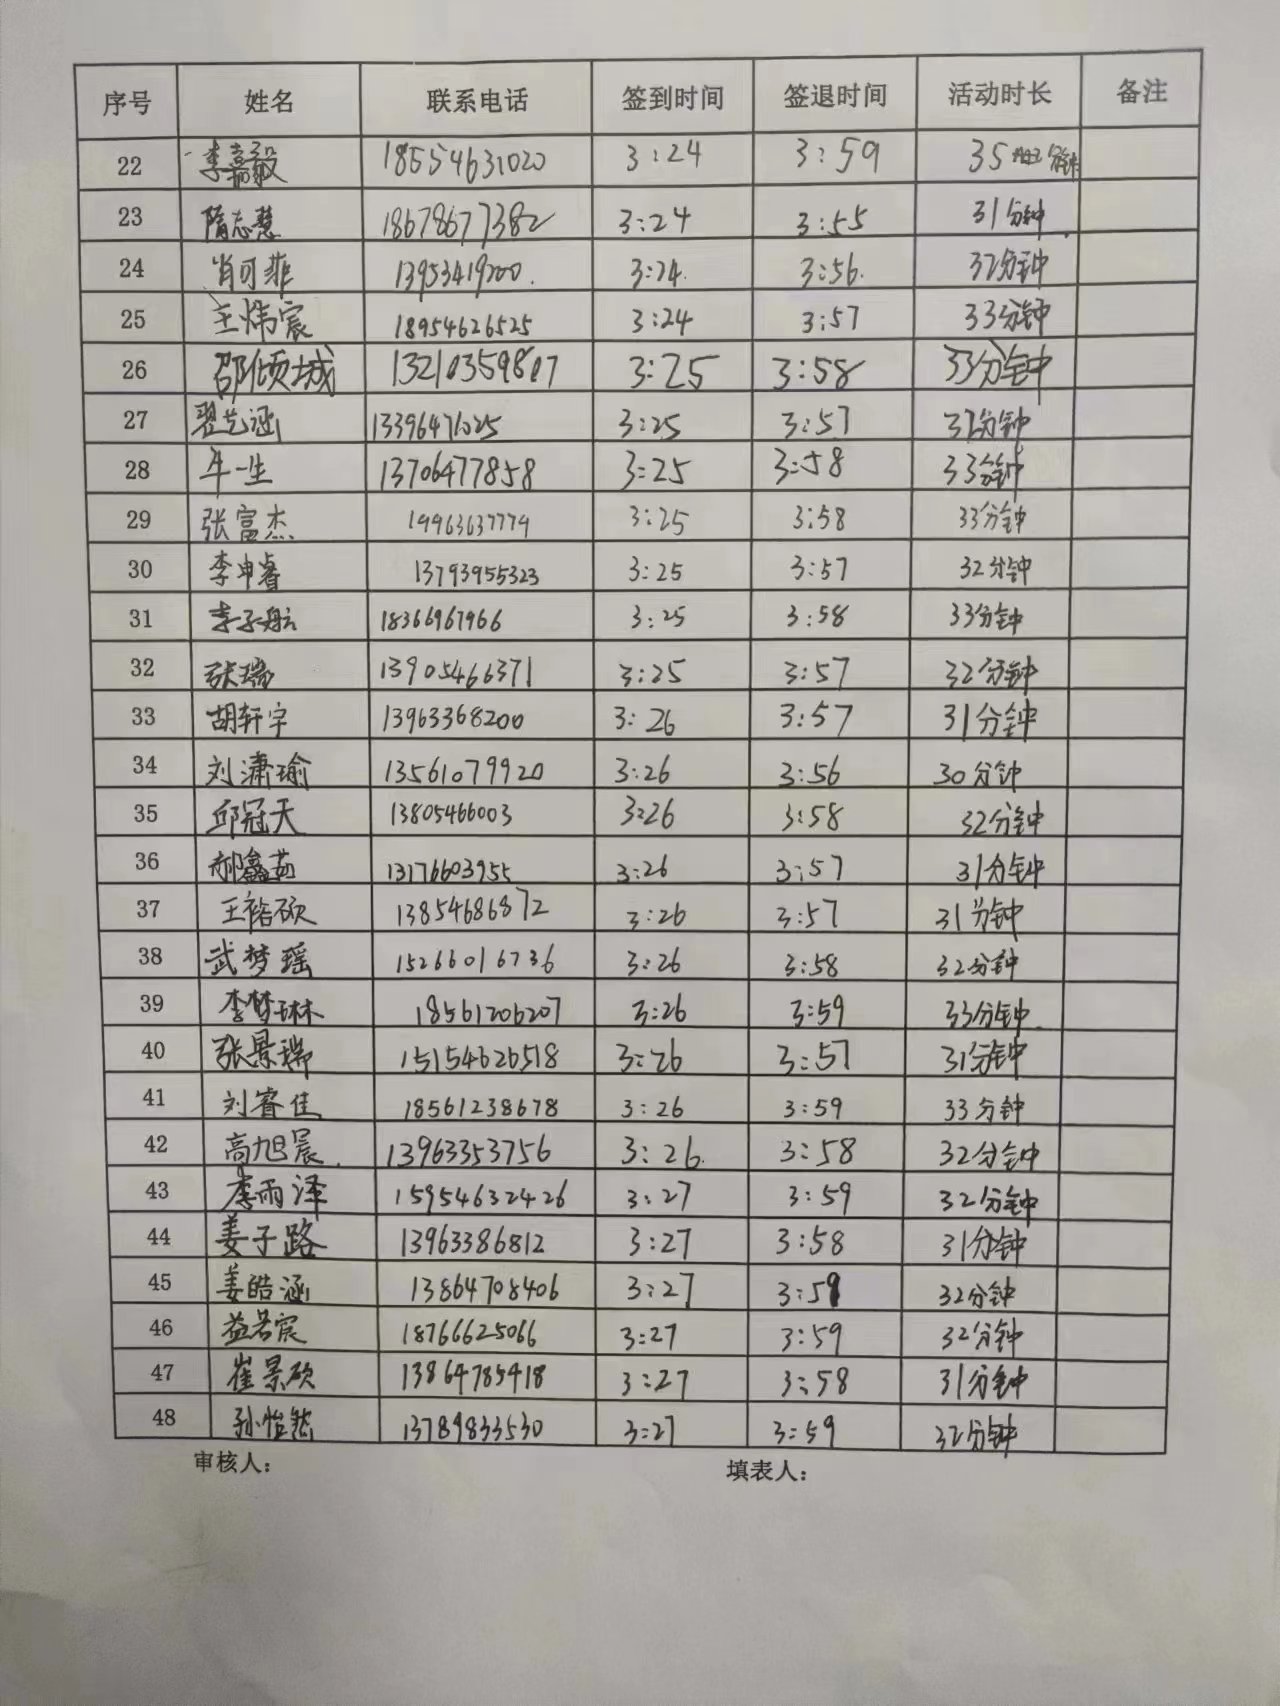 序号 姓名 联系电话 签到时间 签退时间 活动时长 备注
22 李嘉毅 18554631020 3:24 3:59 35 分钟
23 隋志慧 18678677382 3:24 3:55 31分钟
24 肖可菲 13953419200 3:24 3:56 32分钟
25 王炜宸 18954626525 3:24 3:57 33分钟
26 邵倾城 13210359807 3:25 3:58 33分钟
27 翟艺涵 13396471025 3:25 3:57 32分钟
28 牛一生 13706477858 3:25 3:58 33分钟
29 张富杰 19963637779 3:25 3:58 33分钟
30 李申睿 13793955323 3:25 3:57 32分钟
31 李子航 18366967966 3:25 3:58 33分钟
32 张瑞 13905466371 3:25 3:57 32分钟
33 胡轩宇 13963368200 3:26 3:57 31分钟
34 刘潇瑜 13561079920 3:26 3:56 30分钟
35 邱冠天 13805466003 3:26 3:58 32分钟
36 郝鑫茹 13176603955 3:26 3:57 31分钟
37 王褚硕 13854686872 3:26 3:57 31分钟
38 武梦瑶 15266016736 3:26 3:58 32分钟
39 李梦琳 18561206207 3:26 3:59 33分钟
40 张景瑞 15154626518 3:26 3:57 31分钟
41 刘睿佳 18561238678 3:26 3:59 33分钟
42 高旭宸 13963353756 3:26 3:58 32分钟
43 李雨泽 15954632426 3:27 3:59 32分钟
44 姜子路 13963386812 3:27 3:58 31分钟
45 姜皓涵 13864708406 3:27 3:59 32分钟
46 益若宸 18766625066 3:27 3:59 32分钟
47 崔景硕 13864785418 3:27 3:58 31分钟
48 孙怡然 13789833530 3:27 3:59 32分钟
审核人: 填表人: